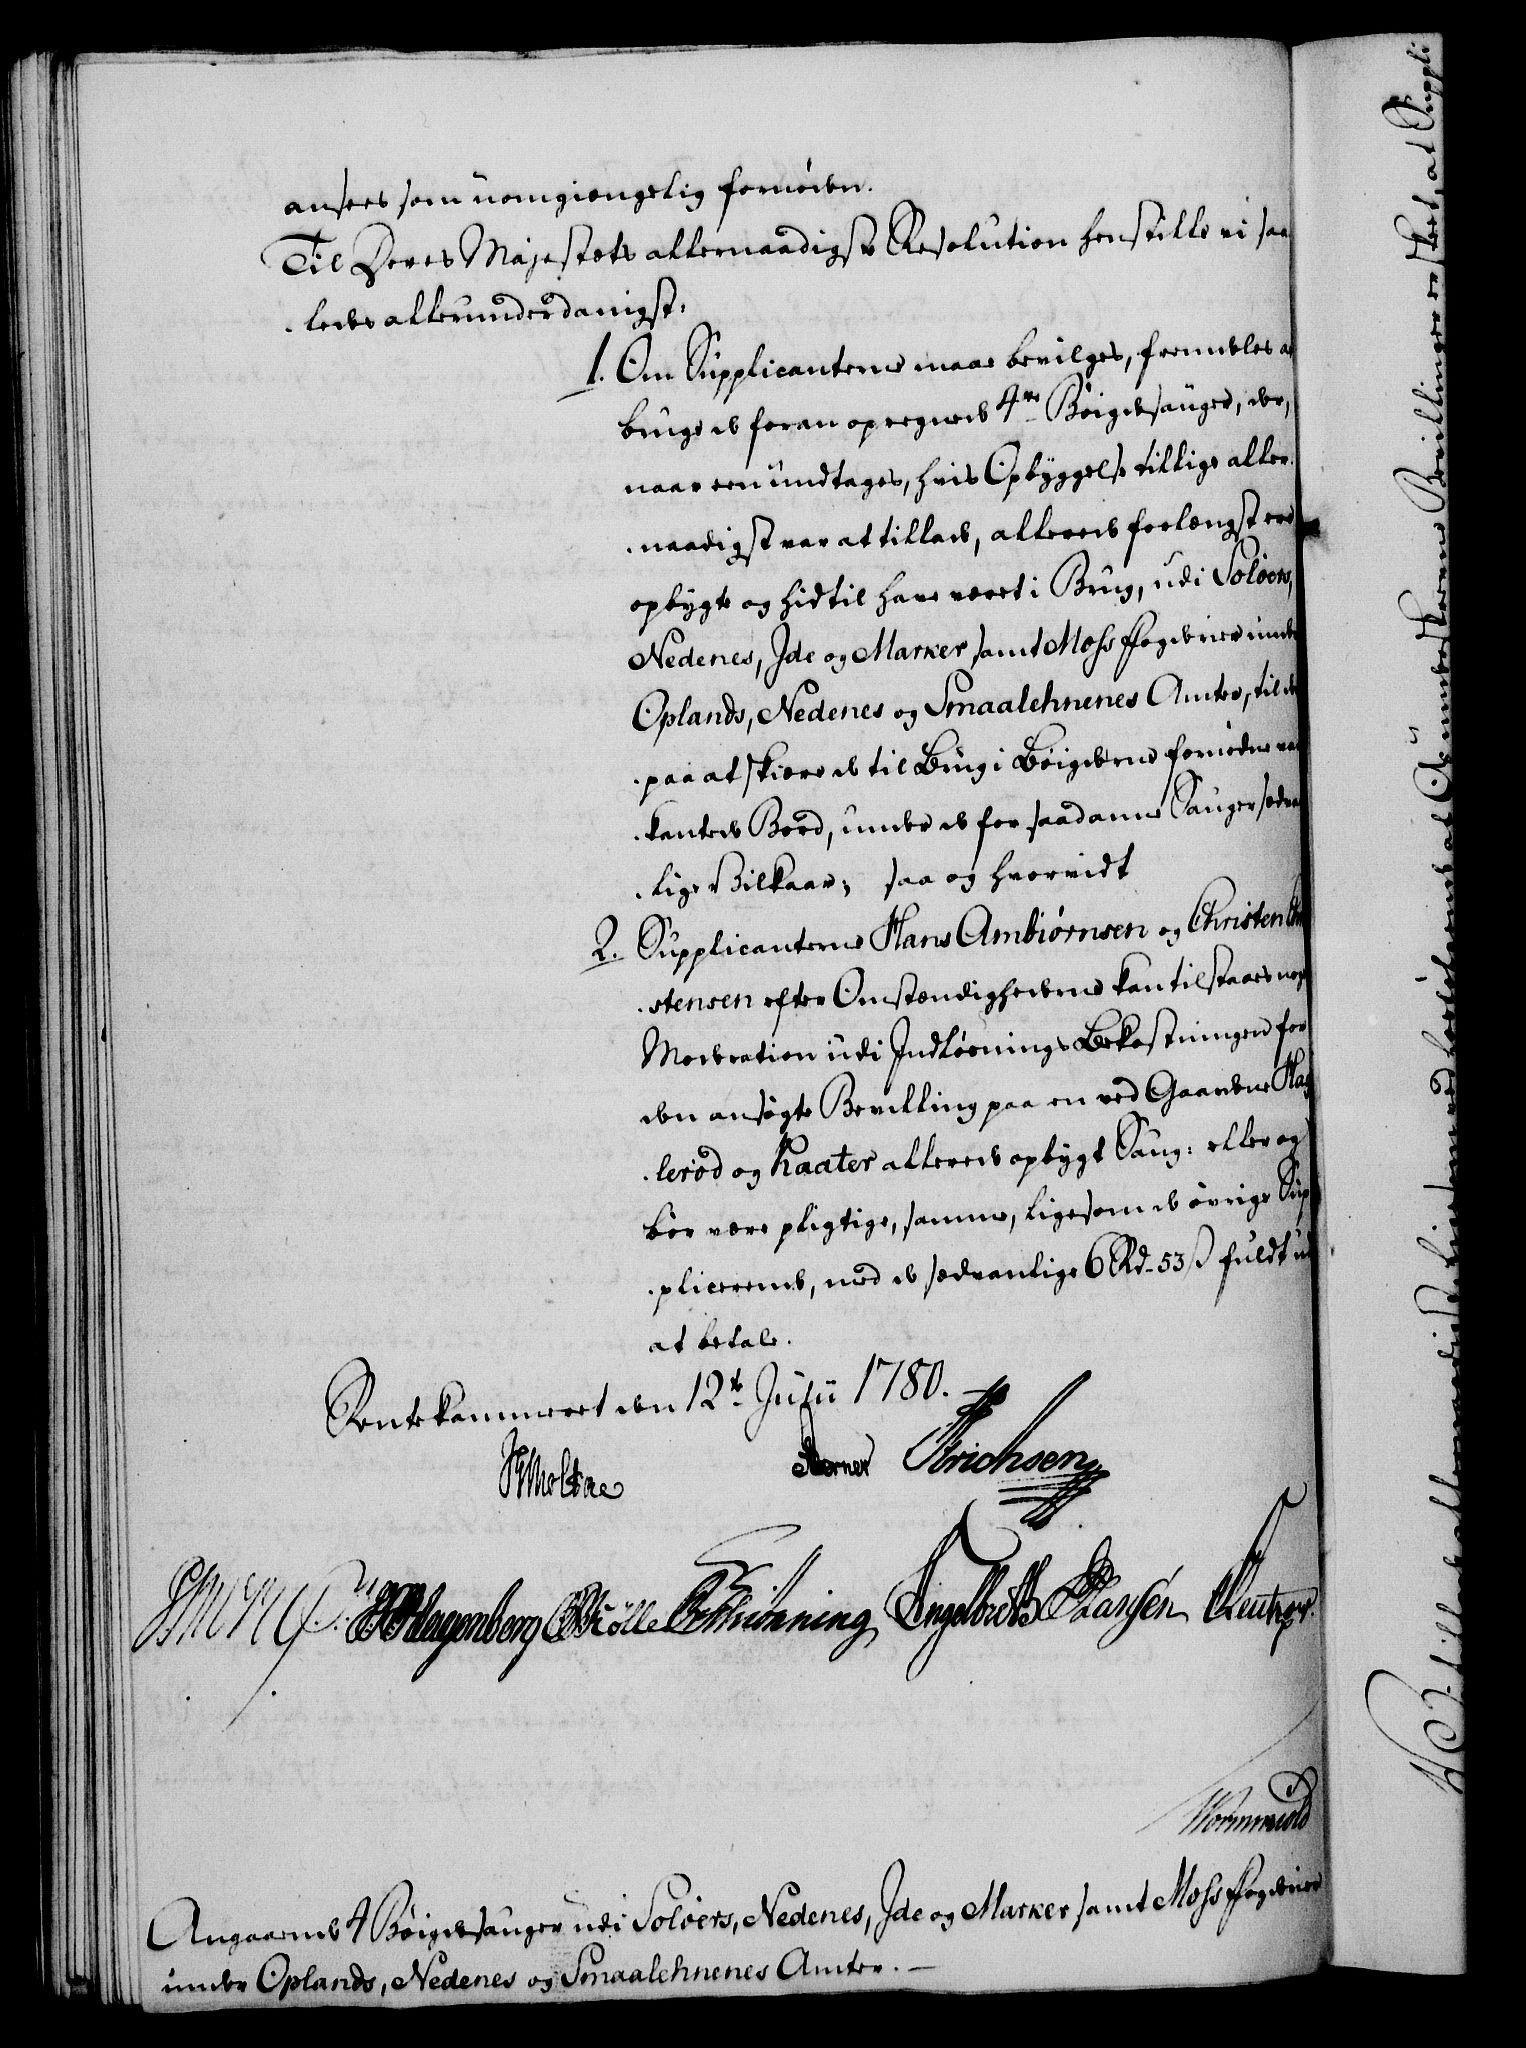 ansees som uomgiængelig fornøden.
Til Deres Majestæts allernaadigste Resolution henstille vi saa
-ledes allerunderdanigst:
1. Om Supplicanterne maae bevilges, fremdeles at
bruge de foran opregnede 4re Bøigdesauger, der,
naar een undtages, hvis Opbyggelse tillige aller-
-naadigst var at tillade, allerede forlængst ere
opbygte og hidtil have været i Brug, udi Soløers,
Nedenes, Ide og Marker samt Moss Fogderier under
Oplands, Nedenes og Smaalehnenes Amter, til der
-paa at skiære de til Brug i Bøigderne fornødne
-kantede Bord, under de for saadanne Sauger sædvan
-lige Vilkaar; saa og hvorvidt
2. Supplicanterne Hans Ambiørnsen og Christen
-stensen efter Omstændighederne kan tilstaaes nogen
Moderation udi Indløsnings Bekostningen for
den ansøgte Bevilling paa en ved Gaardene
-lerød og Kaater allerede opbygt Saug: eller og
bør være pligtige, samme, ligesom de øvrige Sup
-plicerende, med de sædvanlige 6 Rd. 53 ß fuldt ud
at betale.
Rentekammeret den 12te Julii 1780.
HMoltke Aerner Erichsen
Hagenberg Mølle Schiønning Engelbreth Hansen Reutzer.
Wormskiold
Angaaende 4 Bøigdesauger udi Soløers, Nedenes, Ide og Marker samt Moss Fogderier
under Oplands, Nedenes og Smaalehnenes Amter.